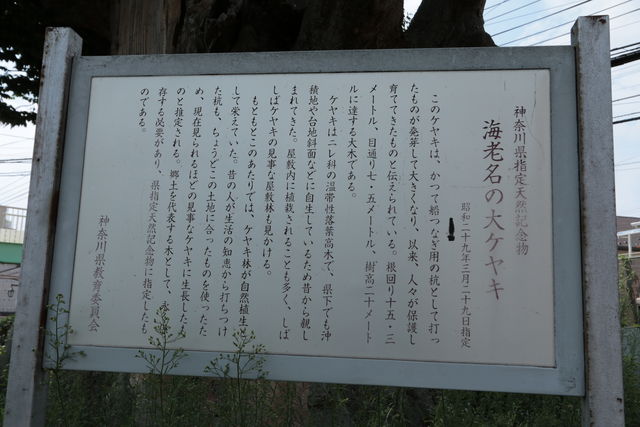 神奈川県指定天然記念物
海老名の大ケヤキ
昭和二十九年三月二十九日指定
このケヤキは、かつて船つなぎ用の杭として打っ
たものが発芽して大きくなり、以来、人々が保護し
育ててきたものと伝えられている。根回り十五・三
メートル、目通り七・五メートル、樹高二十メート
ルに達する大木である。
ケヤキはニレ科の温帯性落葉高木で、県下でも沖
積地や台地斜面などに自生しているため昔から親し
まれてきた。屋敷内に植栽されることも多く、しば
しばケヤキの見事な屋敷林も見かける。
もともとこのあたりでは、ケヤキ林が自然植生と
して栄えていた。昔の人が生活の知恵から打ちつけ
た杭も、ちょうどこの土地に合ったものを使ったた
め、現在見られるほどの見事なケヤキに生長したも
のと推定される。郷土を代表する木として、永
存する必要があり、県指定天然記念物に指定したも
のである。
神奈川県教育委員会